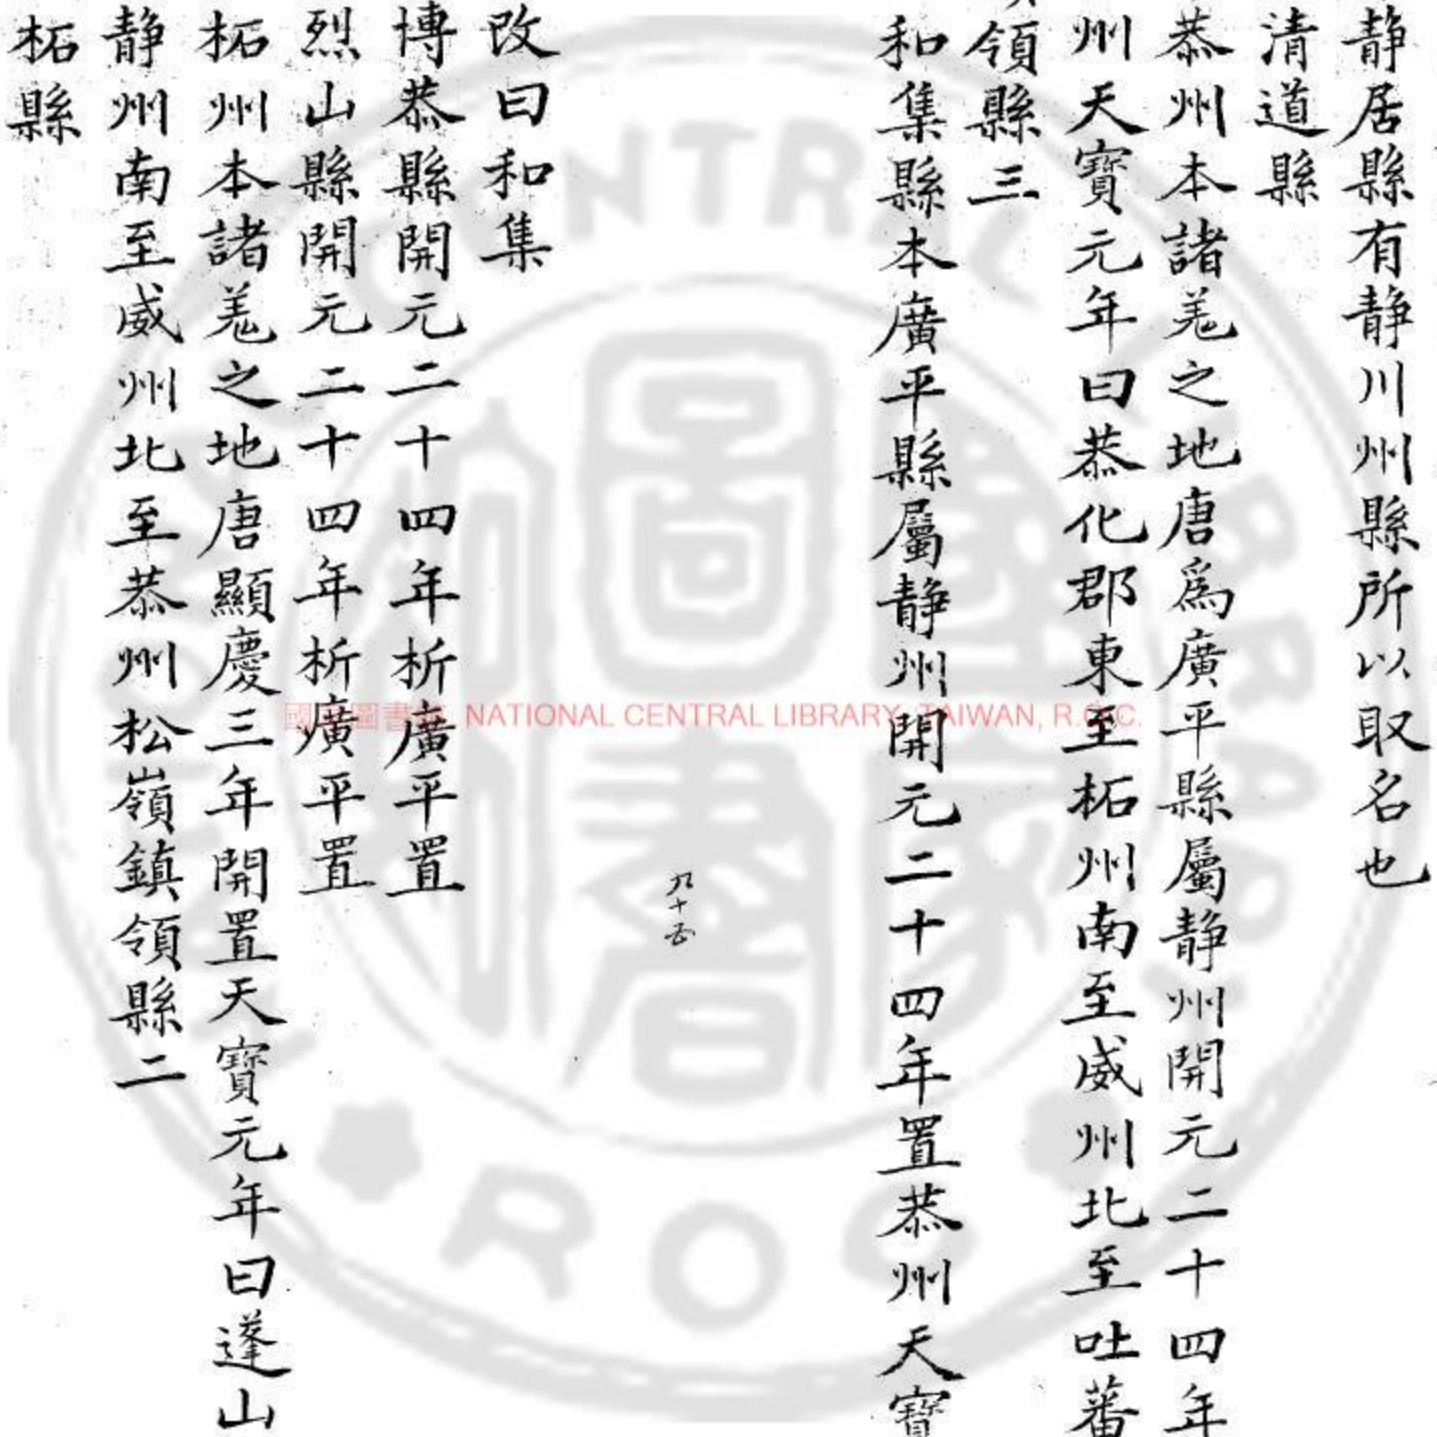 静居縣有静川州縣所以取名也
清道縣
恭州本諸羗之地唐爲廣平縣屬静州開元二十四年
州天寶元年曰恭化郡東至柘州南至威州北至吐蕃
領縣三
和集縣本廣平縣屬静州開元二十四年置恭州天寶
九十五
改曰和集
博恭縣開元二十四年析廣平置
烈山縣開元二十四年析廣平置
柘州本諸羗之地唐顯慶三年開置天寶元年曰蓬山
静州南至威州北至恭州松嶺鎮領縣二
柘縣
NATIONAL CENTRAL LIBRARY, TAIWAN, R.O.C.